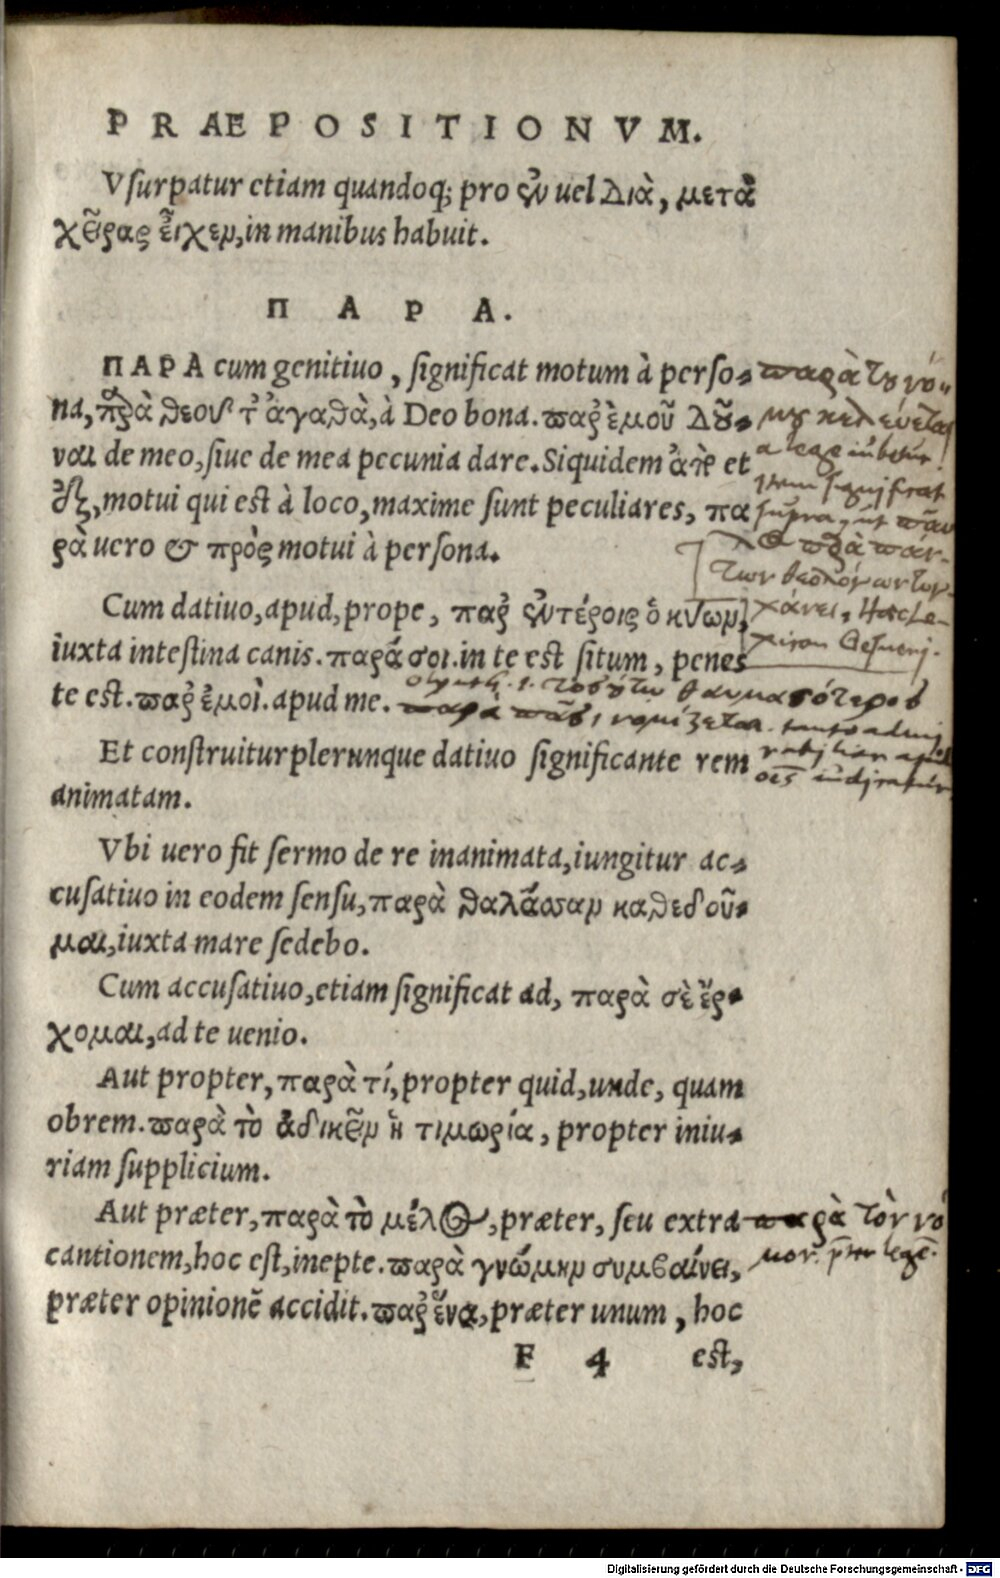 PRÆPOSITIONVM.
Vsurpatur etiam quandoq; pro σὺν uel Διὰ, μετὰ
χεῖρας εἶχεν, in manibus habuit.
ΠΑΡΑ.
ΠΑΡΑ cum genitiuo, significat motum à perso-
na, παρὰ θεοῦ τ' ἀγαθὰ, à Deo bona. παρ' ἐμοῦ Δοῦ-
ναι de meo, siue de mea pecunia dare. Siquidem ἀπὸ et
ἐξ, motui qui est à loco, maxime sunt peculiares, πα
ρὰ uero & πρὸς motui à persona.
Cum datiuo, apud, prope, παρ' ἐντέροις ὁ κύων,
iuxta intestina canis. παρά σοι. in te est situm, penes
te est. παρ' ἐμοὶ. apud me.
Et construitur plerunque datiuo significante rem
animatam.
Vbi uero fit sermo de re inanimata, iungitur ac-
cusatiuo in eodem sensu, παρὰ θαλάσσαν καθεδοῦ-
μαι, iuxta mare sedebo.
Cum accusatiuo, etiam significat ad, παρὰ σὲ ἔρ-
χομαι, ad te uenio.
Aut propter, παρὰ τί, propter quid, unde, quam
obrem. παρὰ τὸ ἀδικεῖν ἡ τιμωρία, propter iniu-
riam supplicium.
Aut præter, παρὰ τὸ μέλος, præter, seu extra
cantionem, hoc est, inepte. παρὰ γνώμην συμβαίνει,
præter opinionē accidit. παρ' ἕνα, præter unum, hoc
F 4 est,
παρὰ τοῦ νό-
μου κελεύεται
a lege iubetur
item significat
supra, ut
παρὰ πάν-
των θεολόγων τυγ-
χάνει,
τοσούτῳ θαυμασότερος
παρὰ πᾶσι νομίζεται. tanto admi
rabilior apud
oēs iudicatur
παρὰ τὸν νό
μον. legē.
Digitalisierung gefördert durch die Deutsche Forschungsgemeinschaft - DFG